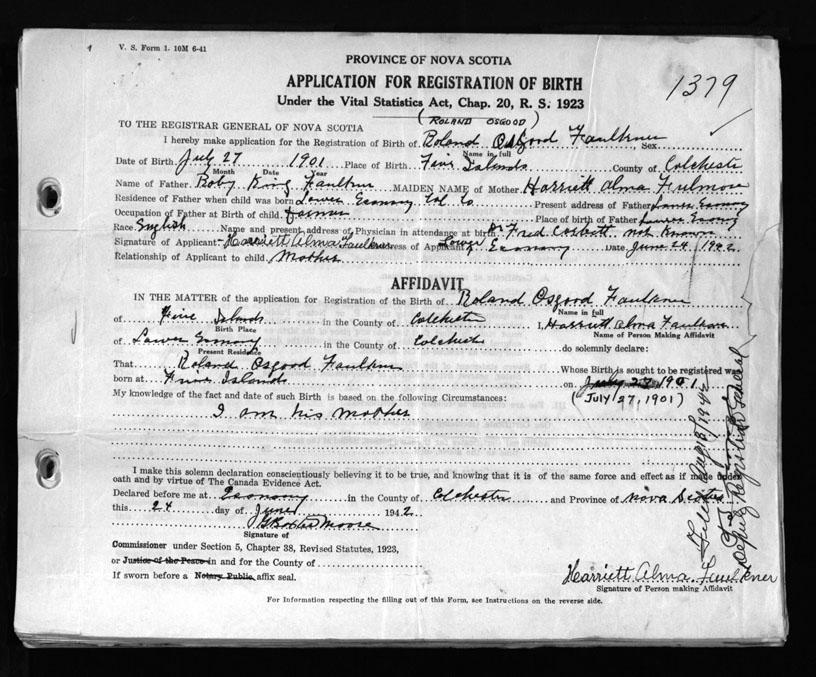 V. S. Form 1. 10M 6-41
PROVINCE OF NOVA SCOTIA
1379
APPLICATION FOR REGISTRATION OF BIRTH
Under the Vital Statistics Act, Chap. 20, R. S. 1923
(ROLAND OSGOOD)
TO THE REGISTRAR GENERAL OF NOVA SCOTIA
I hereby make application for the Registration of Birth of Roland Osgood Faulkner Sex
Name in full
Date of Birth July 27 1901 Place of Birth Five Islands County of Colchester
Month Date Year
Name of Father Roby King Faulkner MAIDEN NAME of Mother Harriett Alma Fulmore
Residence of Father when child was born Lower Economy Col. Co Present address of Father Lower Economy
Occupation of Father at Birth of child farmer Place of birth of Father Lower Economy
Race English Name and present address of Physician in attendance at birth Dr Fred Corbett not known
Signature of Applicant Harriett Alma Faulkner Address of Applicant Lower Economy Date June 24 1942
Relationship of Applicant to child Mother
AFFIDAVIT
IN THE MATTER of the application for Registration of the Birth of Roland Osgood Faulkner
Name in full
of Five Islands in the County of Colchester I, Harriett Alma Faulkner
Birth Place Name of Person Making Affidavit
of Lower Economy in the County of Colchester do solemnly declare:
Present Residence
That Roland Osgood Faulkner Whose Birth is sought to be registered was
born at Five Islands on July 27 1901
(July 27, 1901)
My knowledge of the fact and date of such Birth is based on the following Circumstances:
I am his mother
I make this solemn declaration conscientiously believing it to be true, and knowing that it is of the same force and effect as if made under
oath and by virtue of The Canada Evidence Act.
Declared before me at Economy in the County of Colchester and Province of Nova Scotia
this 24 day of June 1942
Moore
Signature of
Commissioner under Section 5, Chapter 38, Revised Statutes, 1923,
or Justice of the Peace in and for the County of
If sworn before a Notary Public affix seal.
Harriett Alma Faulkner
Signature of Person making Affidavit
For Information respecting the filling out of this Form, see Instructions on the reverse side.
Filed
1942
Deputy Registrar General